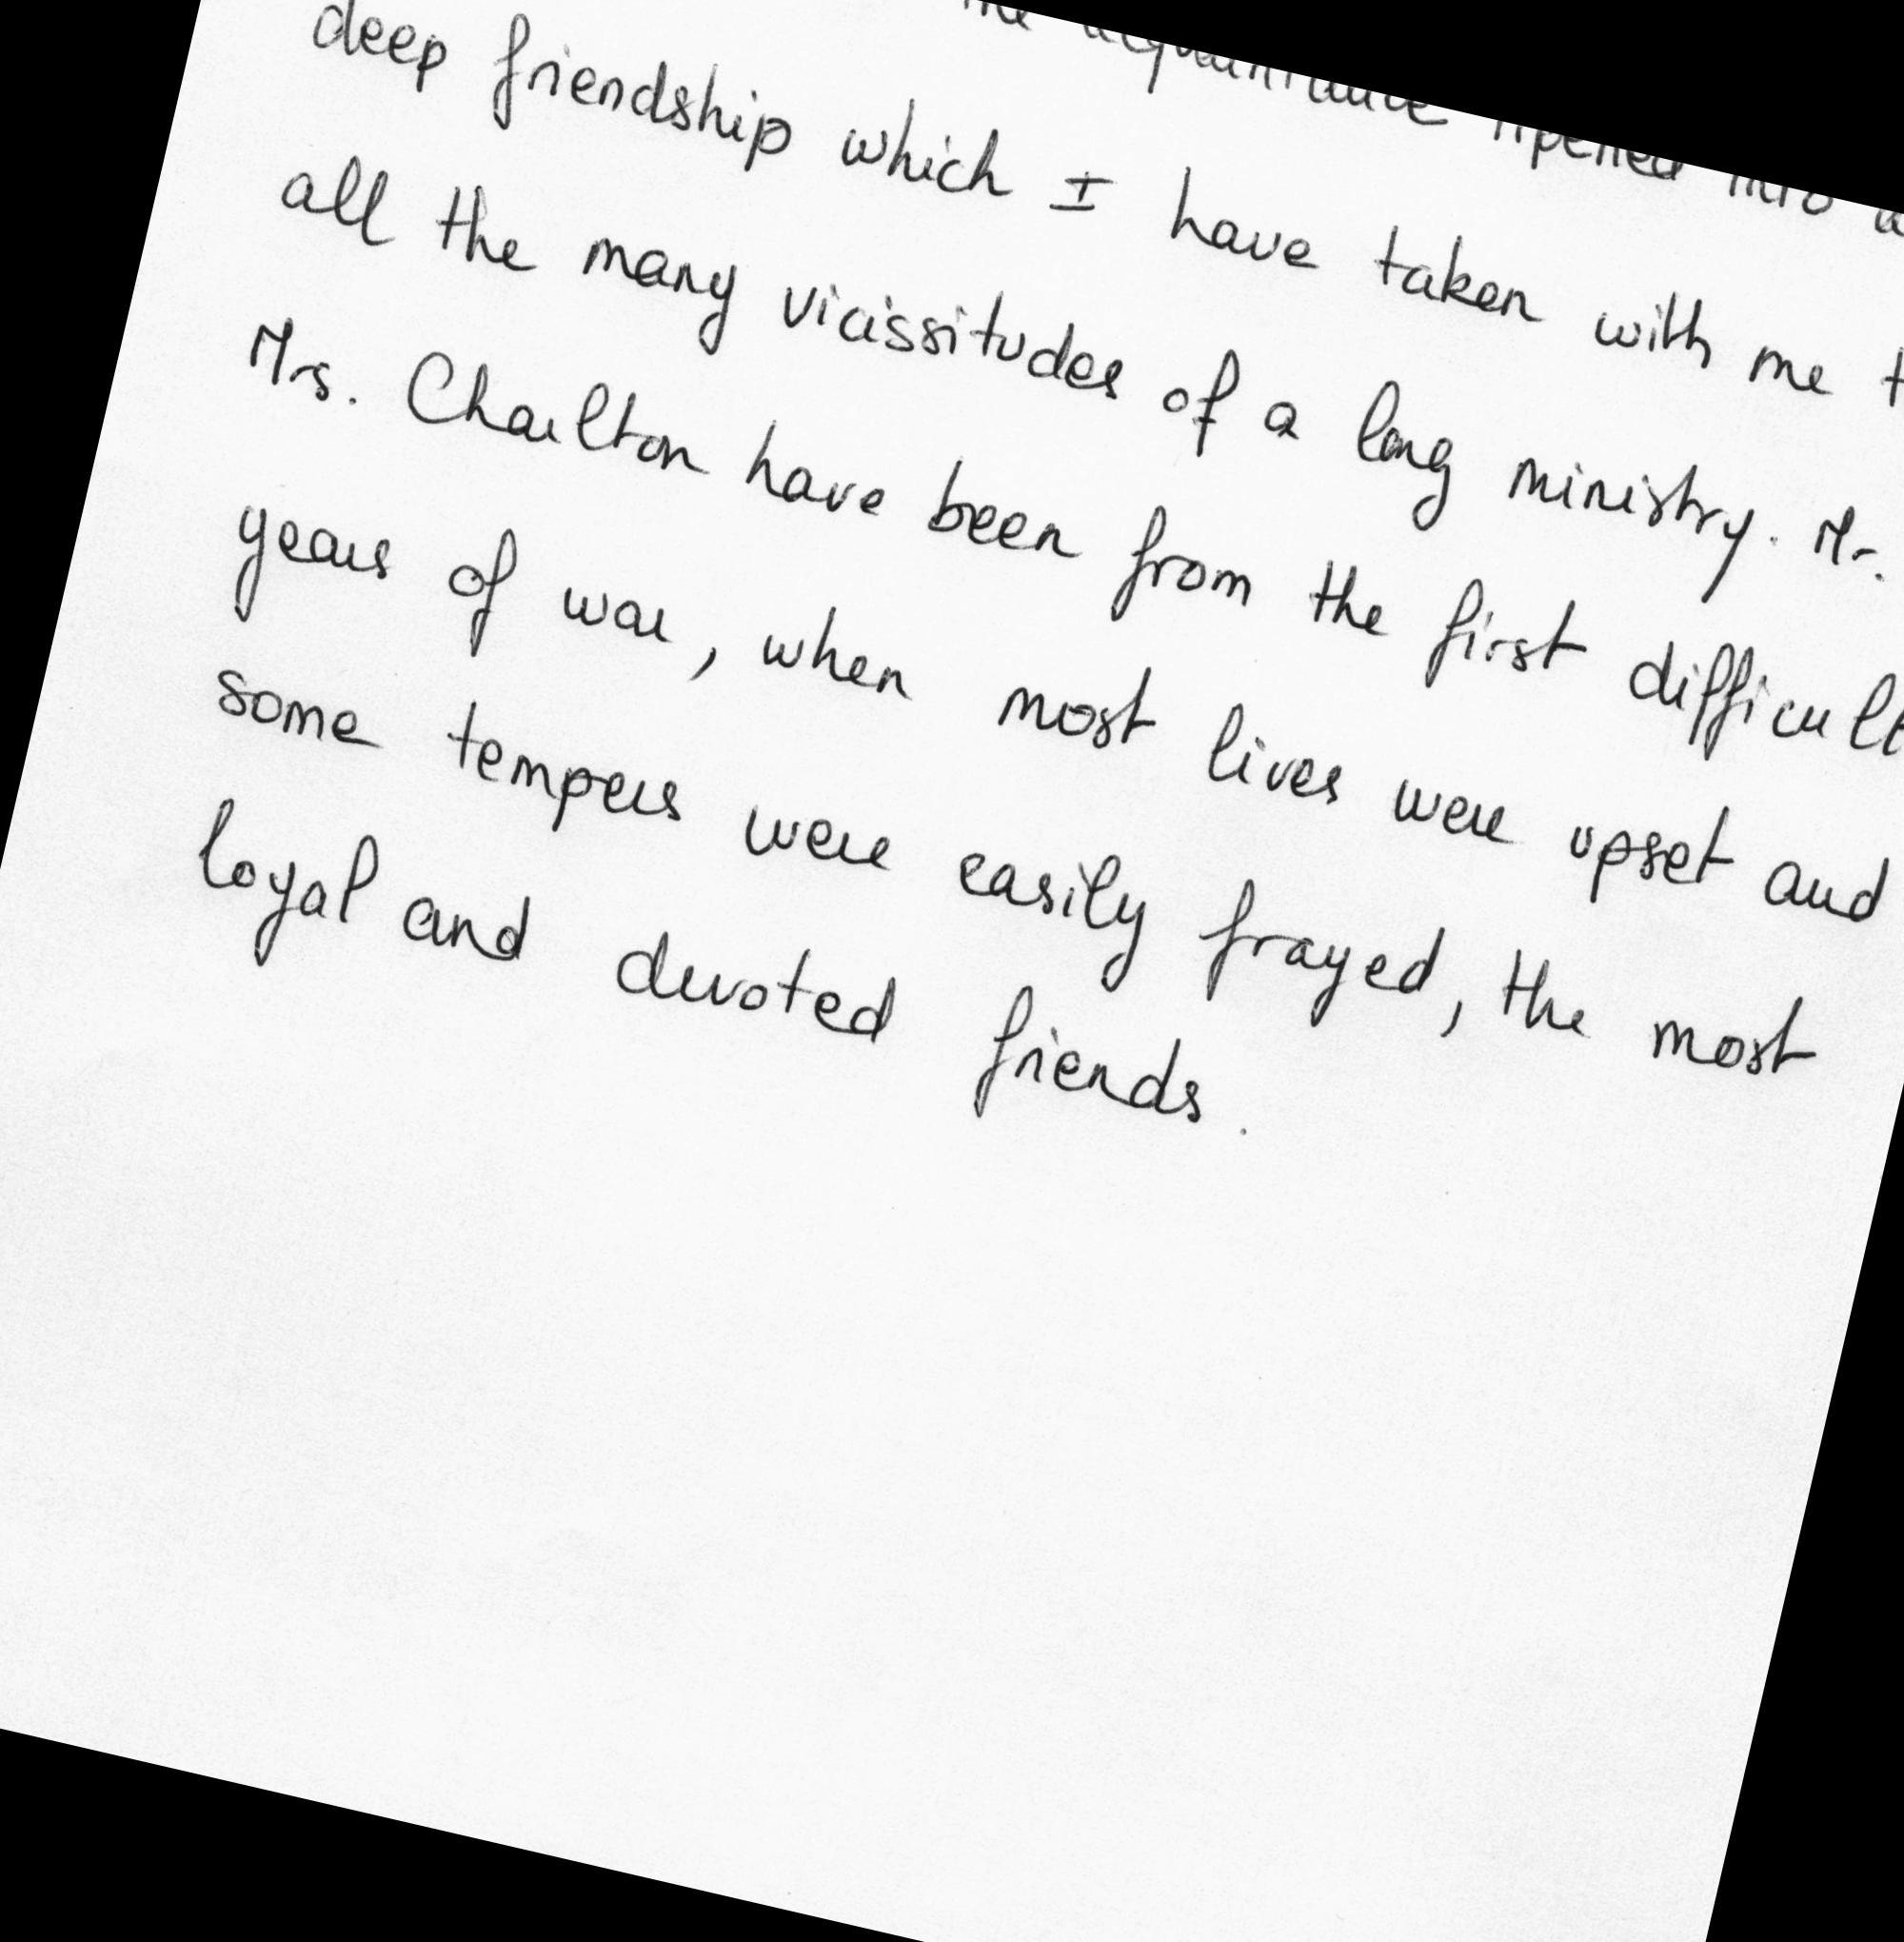 the acquaintance ripened into a
deep friendship which I have taken with me
all the many vicissitudes of a long ministry. Mr.
Mrs. Charlton have been from the first difficult
years of war, when most lives were upset and
some tempers were easily frayed, the most
loyal and devoted friends.